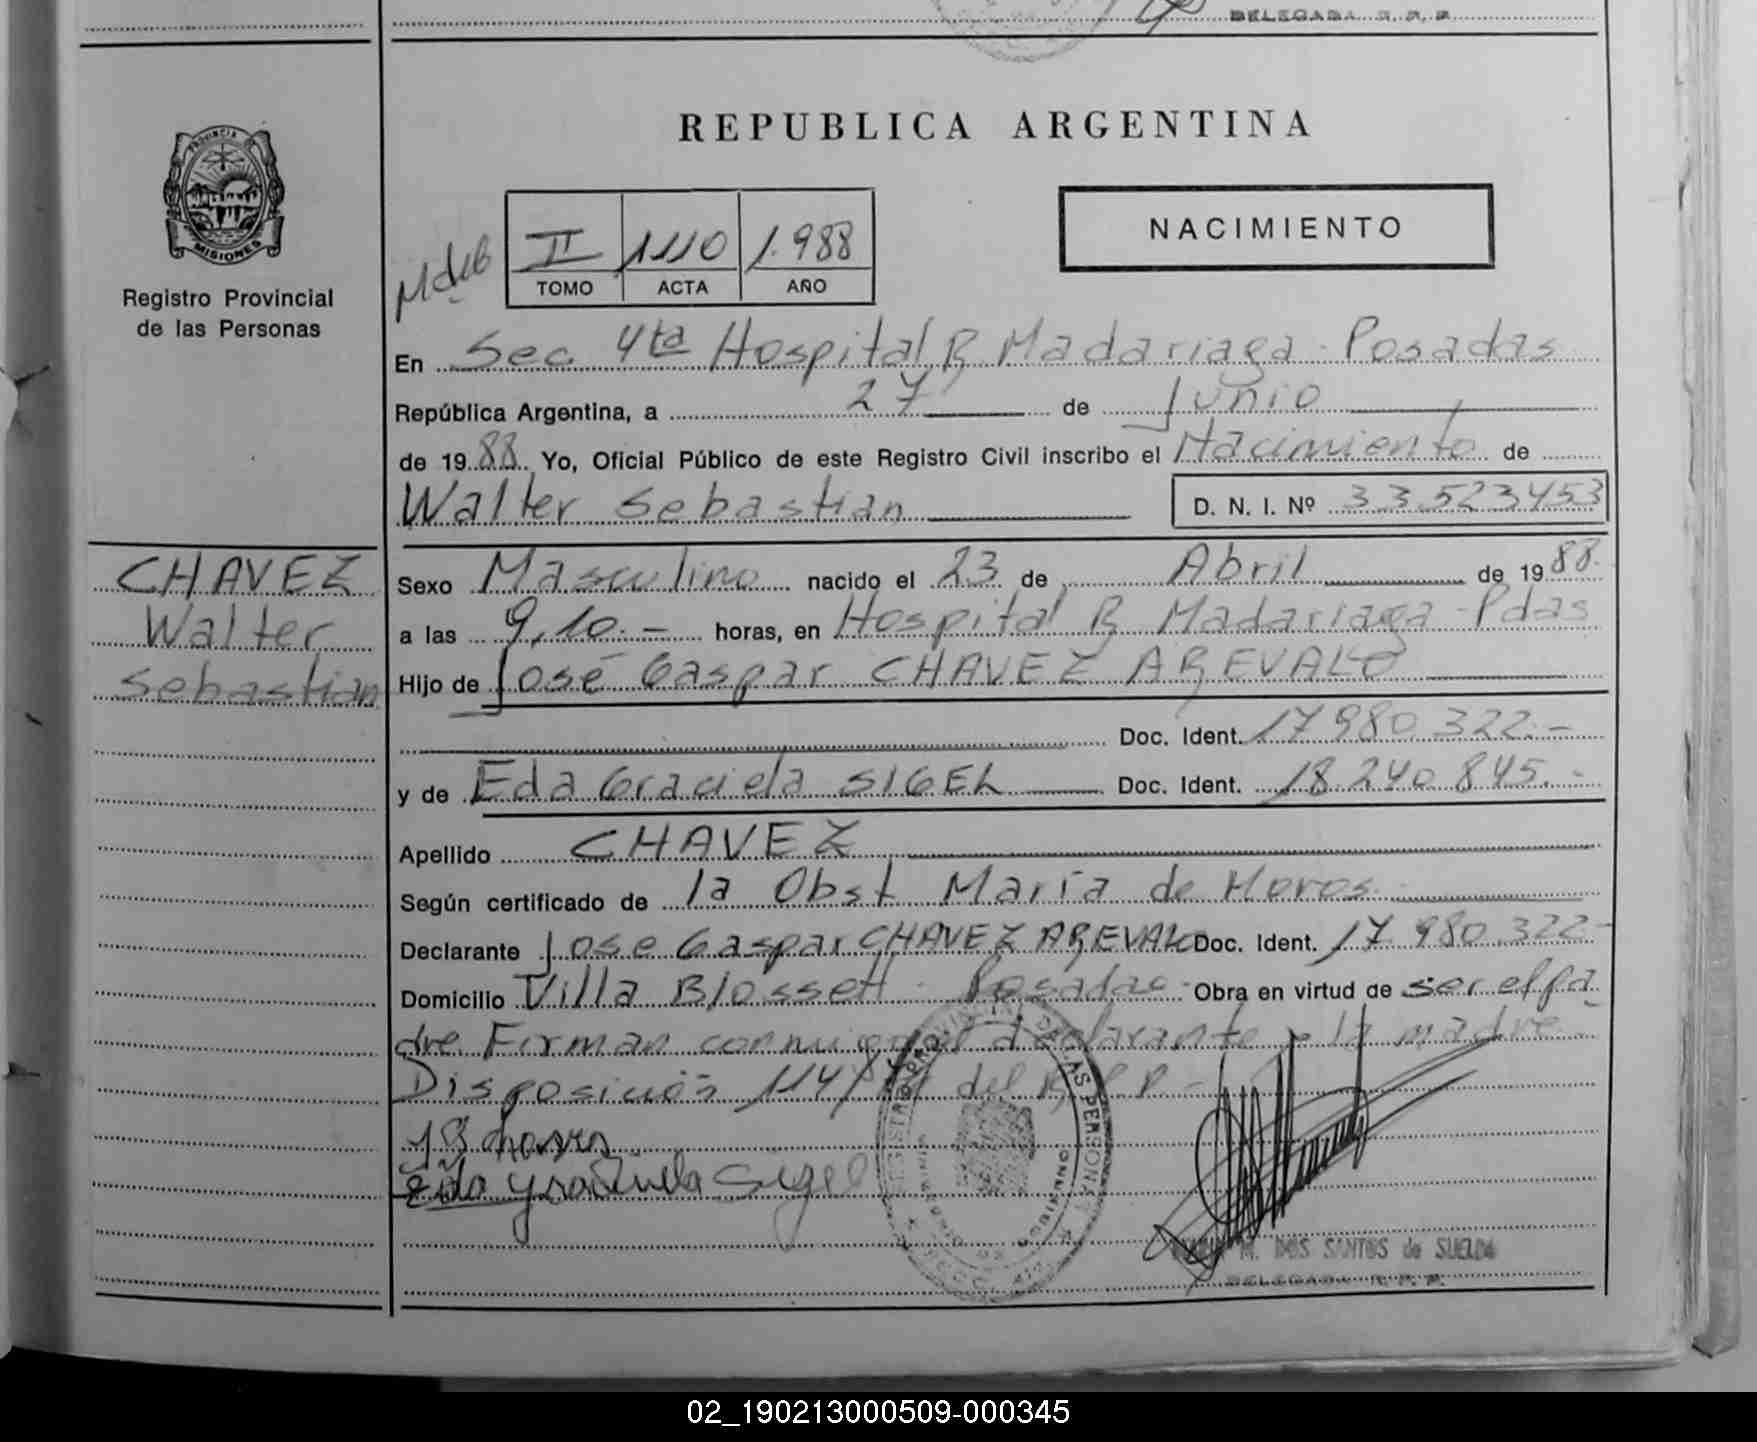 DELEGADA R. P. P.
REPUBLICA ARGENTINA
PROVINCIA DE
MISIONES
Registro Provincial
de las Personas
II 1110 1.988
TOMO ACTA AÑO
NACIMIENTO
En Sec. 4ta Hospital R Madariaga - Posadas
República Argentina, a 27 de Junio
de 1988. Yo, Oficial Público de este Registro Civil inscribo el Nacimiento de
Walter Sebastian D. N. I. Nº 33.523453
CHAVEZ
Walter
Sebastian
Sexo Masculino nacido el 23 de Abril de 1988.
a las 9,10.- horas, en Hospital R Madariaga - Pdas
Hijo de José Gaspar CHAVEZ AREVALO
Doc. Ident. 17 980.322.-
y de Eda Graciela SIGEL Doc. Ident. 18.240.845.-
Apellido CHAVEZ
Según certificado de la Obst María de
Declarante Jose Gaspar CHAVEZ AREVALO Doc. Ident. 17.980.322-
Domicilio Villa Blossett - Posadas - Obra en virtud de ser el pa
dre. Firman conmigo el declarante y la madre
Disposición 114/ del R P P -
Eda Sigel
REGISTRO PROVINCIAL DE LAS PERSONAS
MINISTERIO DE GOBIERNO
M. DOS SANTOS de SUELDO
DELEGADA R. P. P.
02_190213000509-000345